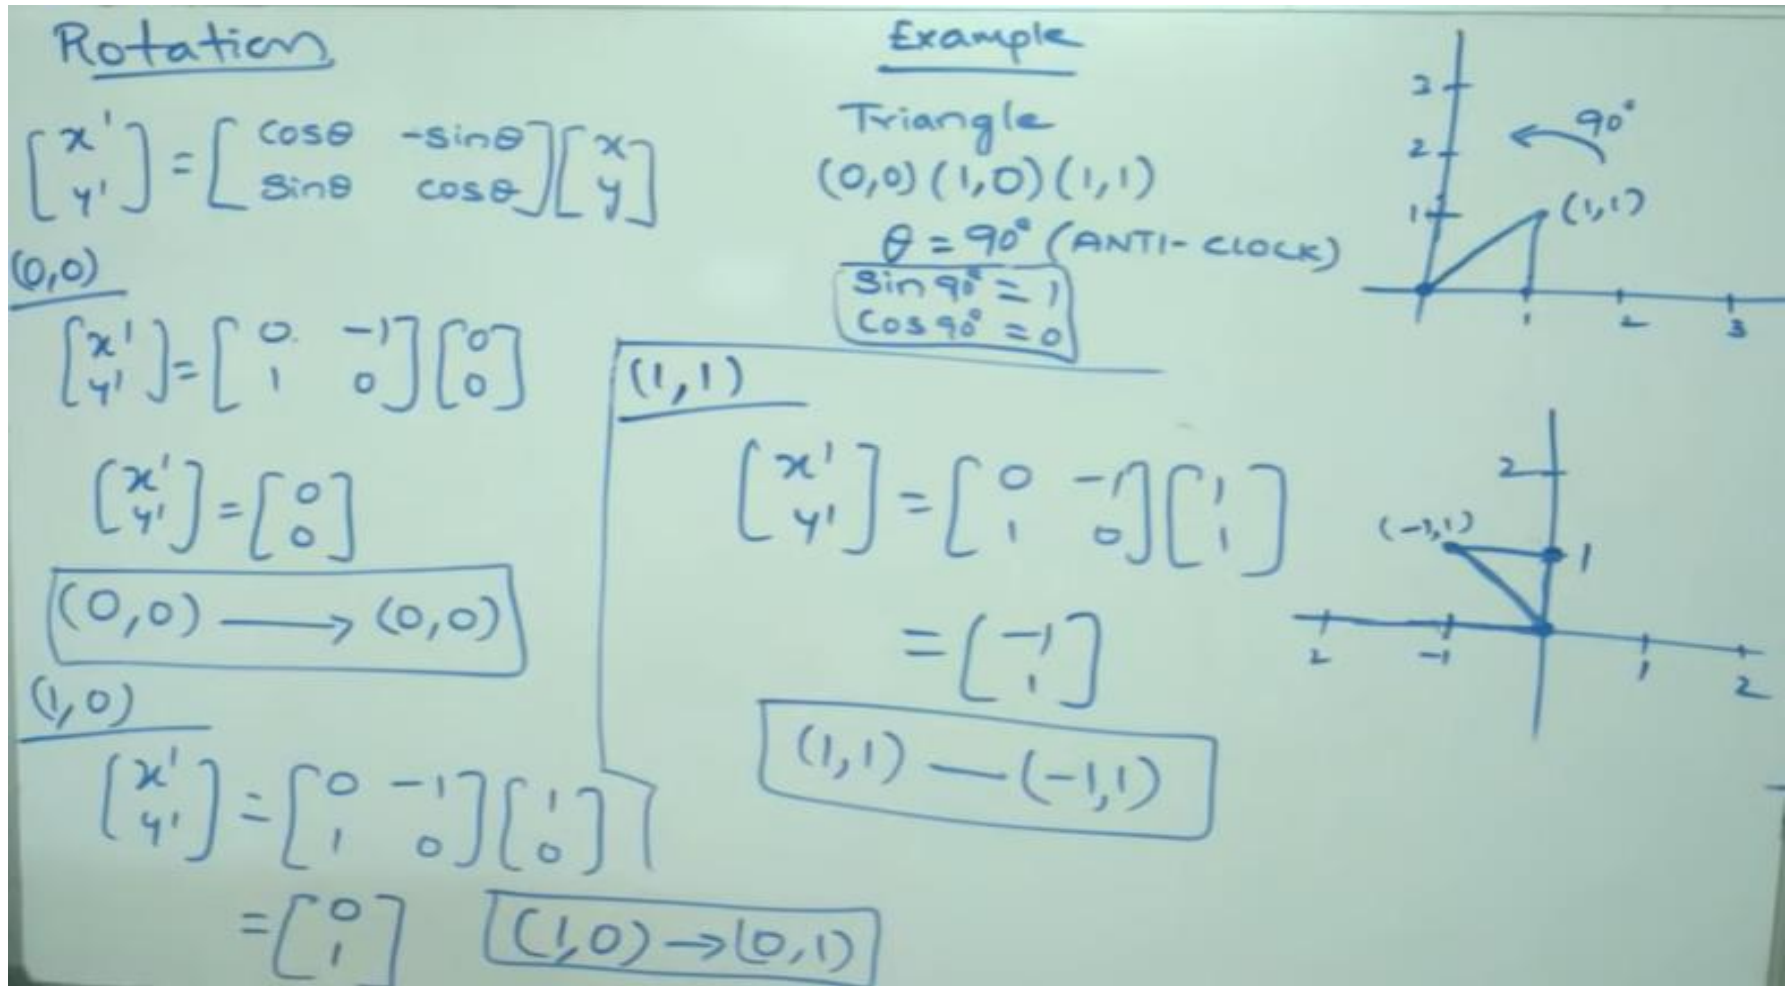 Rotation
[x' y'] = [cosθ -sinθ sinθ cosθ][x y]
(0,0)
[x' y'] = [0 -1 1 0][0 0]
[x' y'] = [0 0]
(0,0) → (0,0)
(1,0)
[x' y'] = [0 -1 1 0][1 0]
= [0 1]
(1,0) → (0,1)
Example
Triangle
(0,0) (1,0) (1,1)
θ = 90° (ANTI-CLOCK)
Sin 90° = 1
Cos 90° = 0
(1,1)
[x' y'] = [0 -1 1 0][1 1]
= [-1 1]
(1,1) — (-1,1)
3
90°
2
1 (1,1)
1 2 3
2
(-1,1) 1
2 -1 1 2